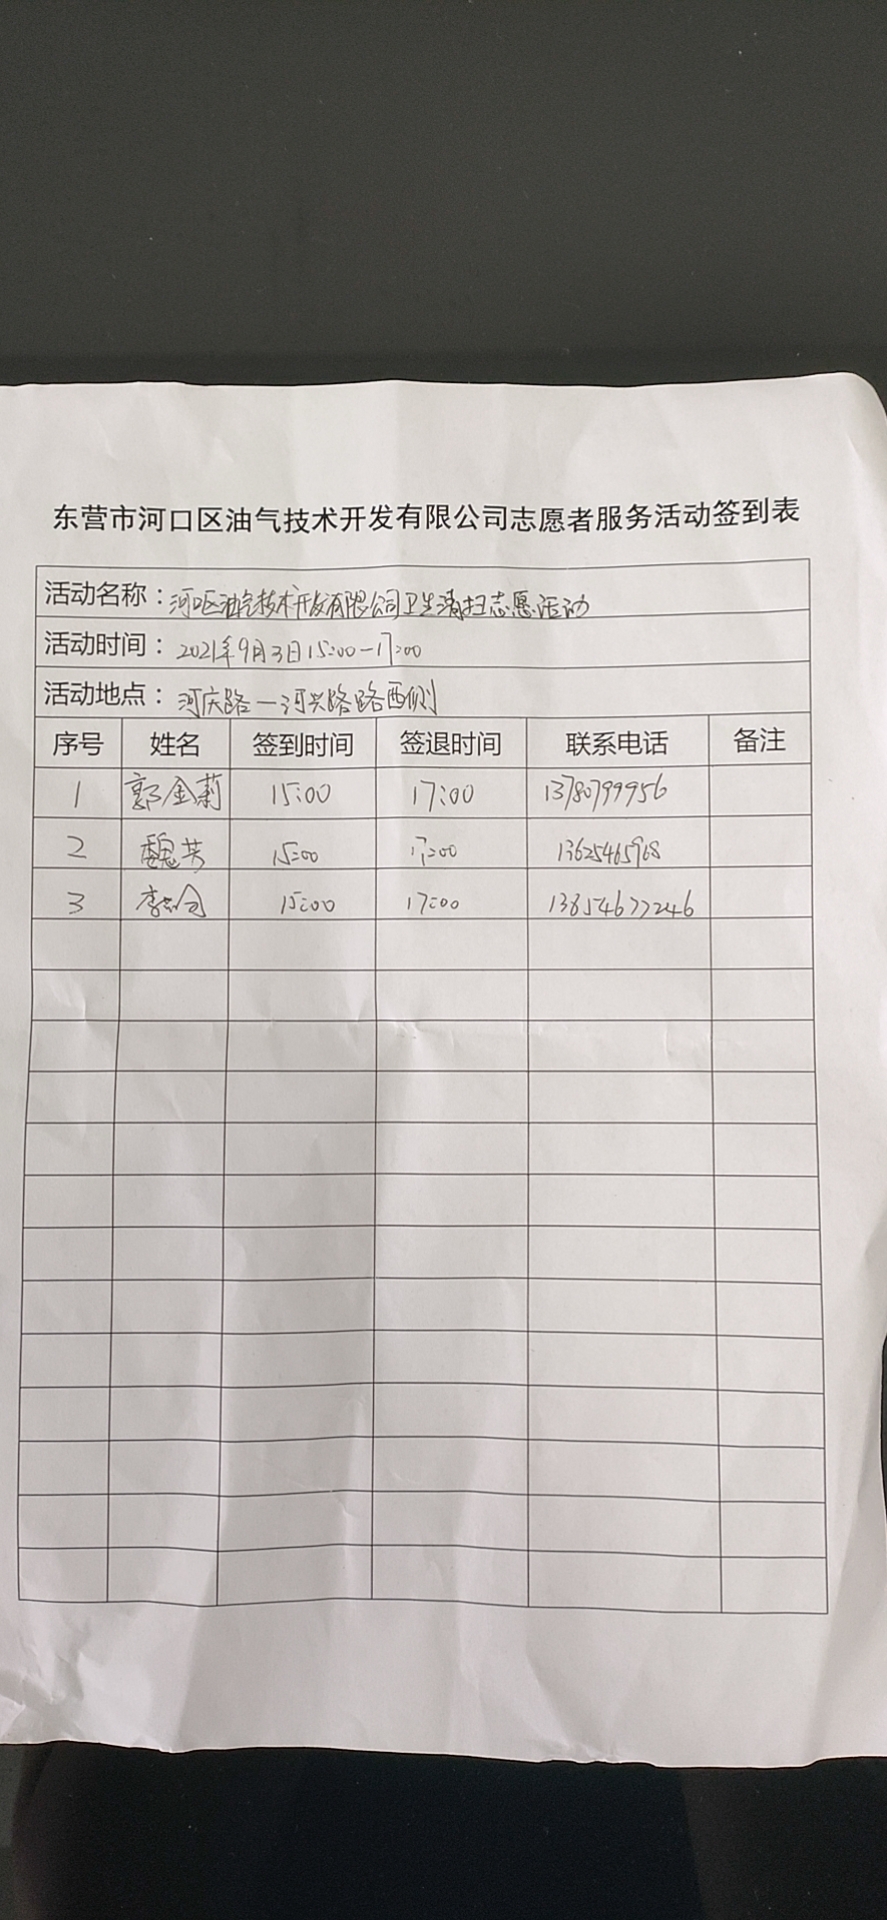 东营市河口区油气技术开发有限公司志愿者服务活动签到表
活动名称：河口区油气技术开发有限公司卫生清扫志愿活动
活动时间：2021年9月3日15:00-17:00
活动地点：河庆路一河兴路路西侧
序号 姓名 签到时间 签退时间 联系电话 备注
1 郭金莉 15:00 17:00 13780799956
2 魏芳 15:00 17:00 13625465968
3 15:00 17:00 13854677246